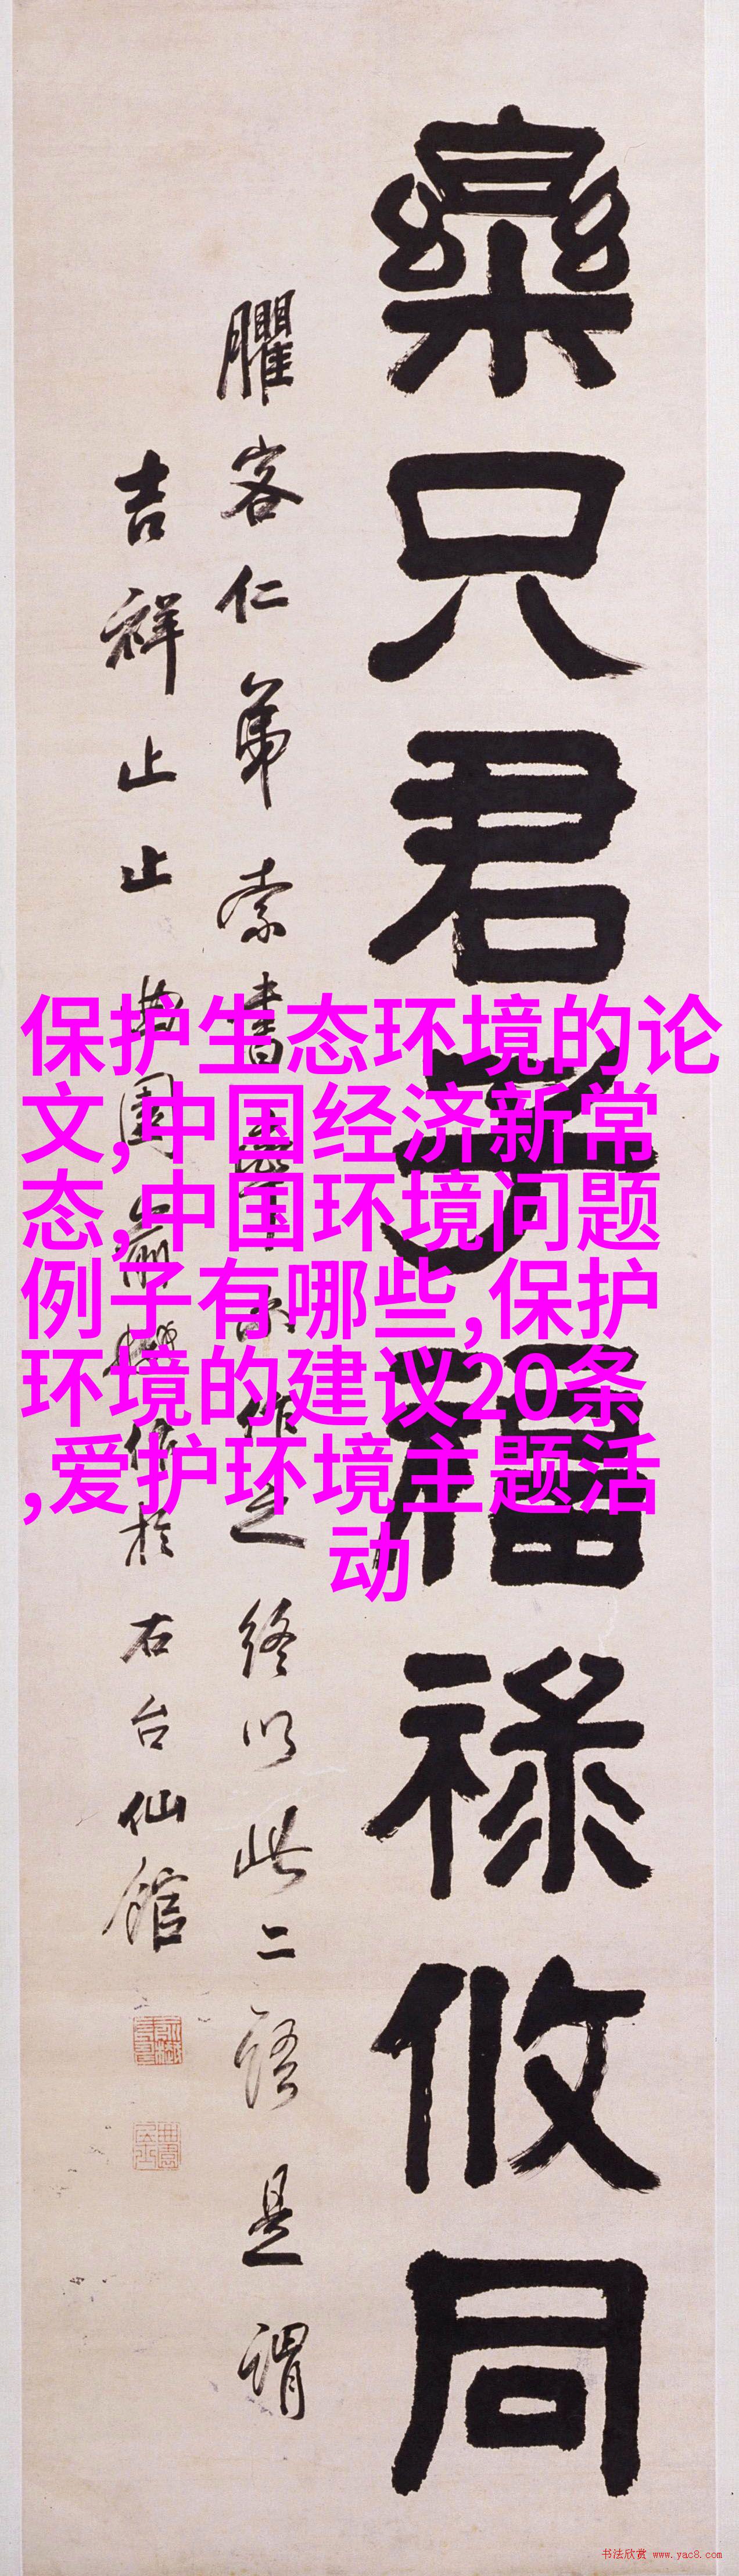 樂只君子福祿攸同
臞客仁弟索書
作之終以此二語是謂
吉祥止止
於右台仙館
保护生态环境的论
文,中国经济新常
态,中国环境问题
例子有哪些,保护
环境的建议20条
,爱护环境主题活
动
书法欣赏 www.yac8.com